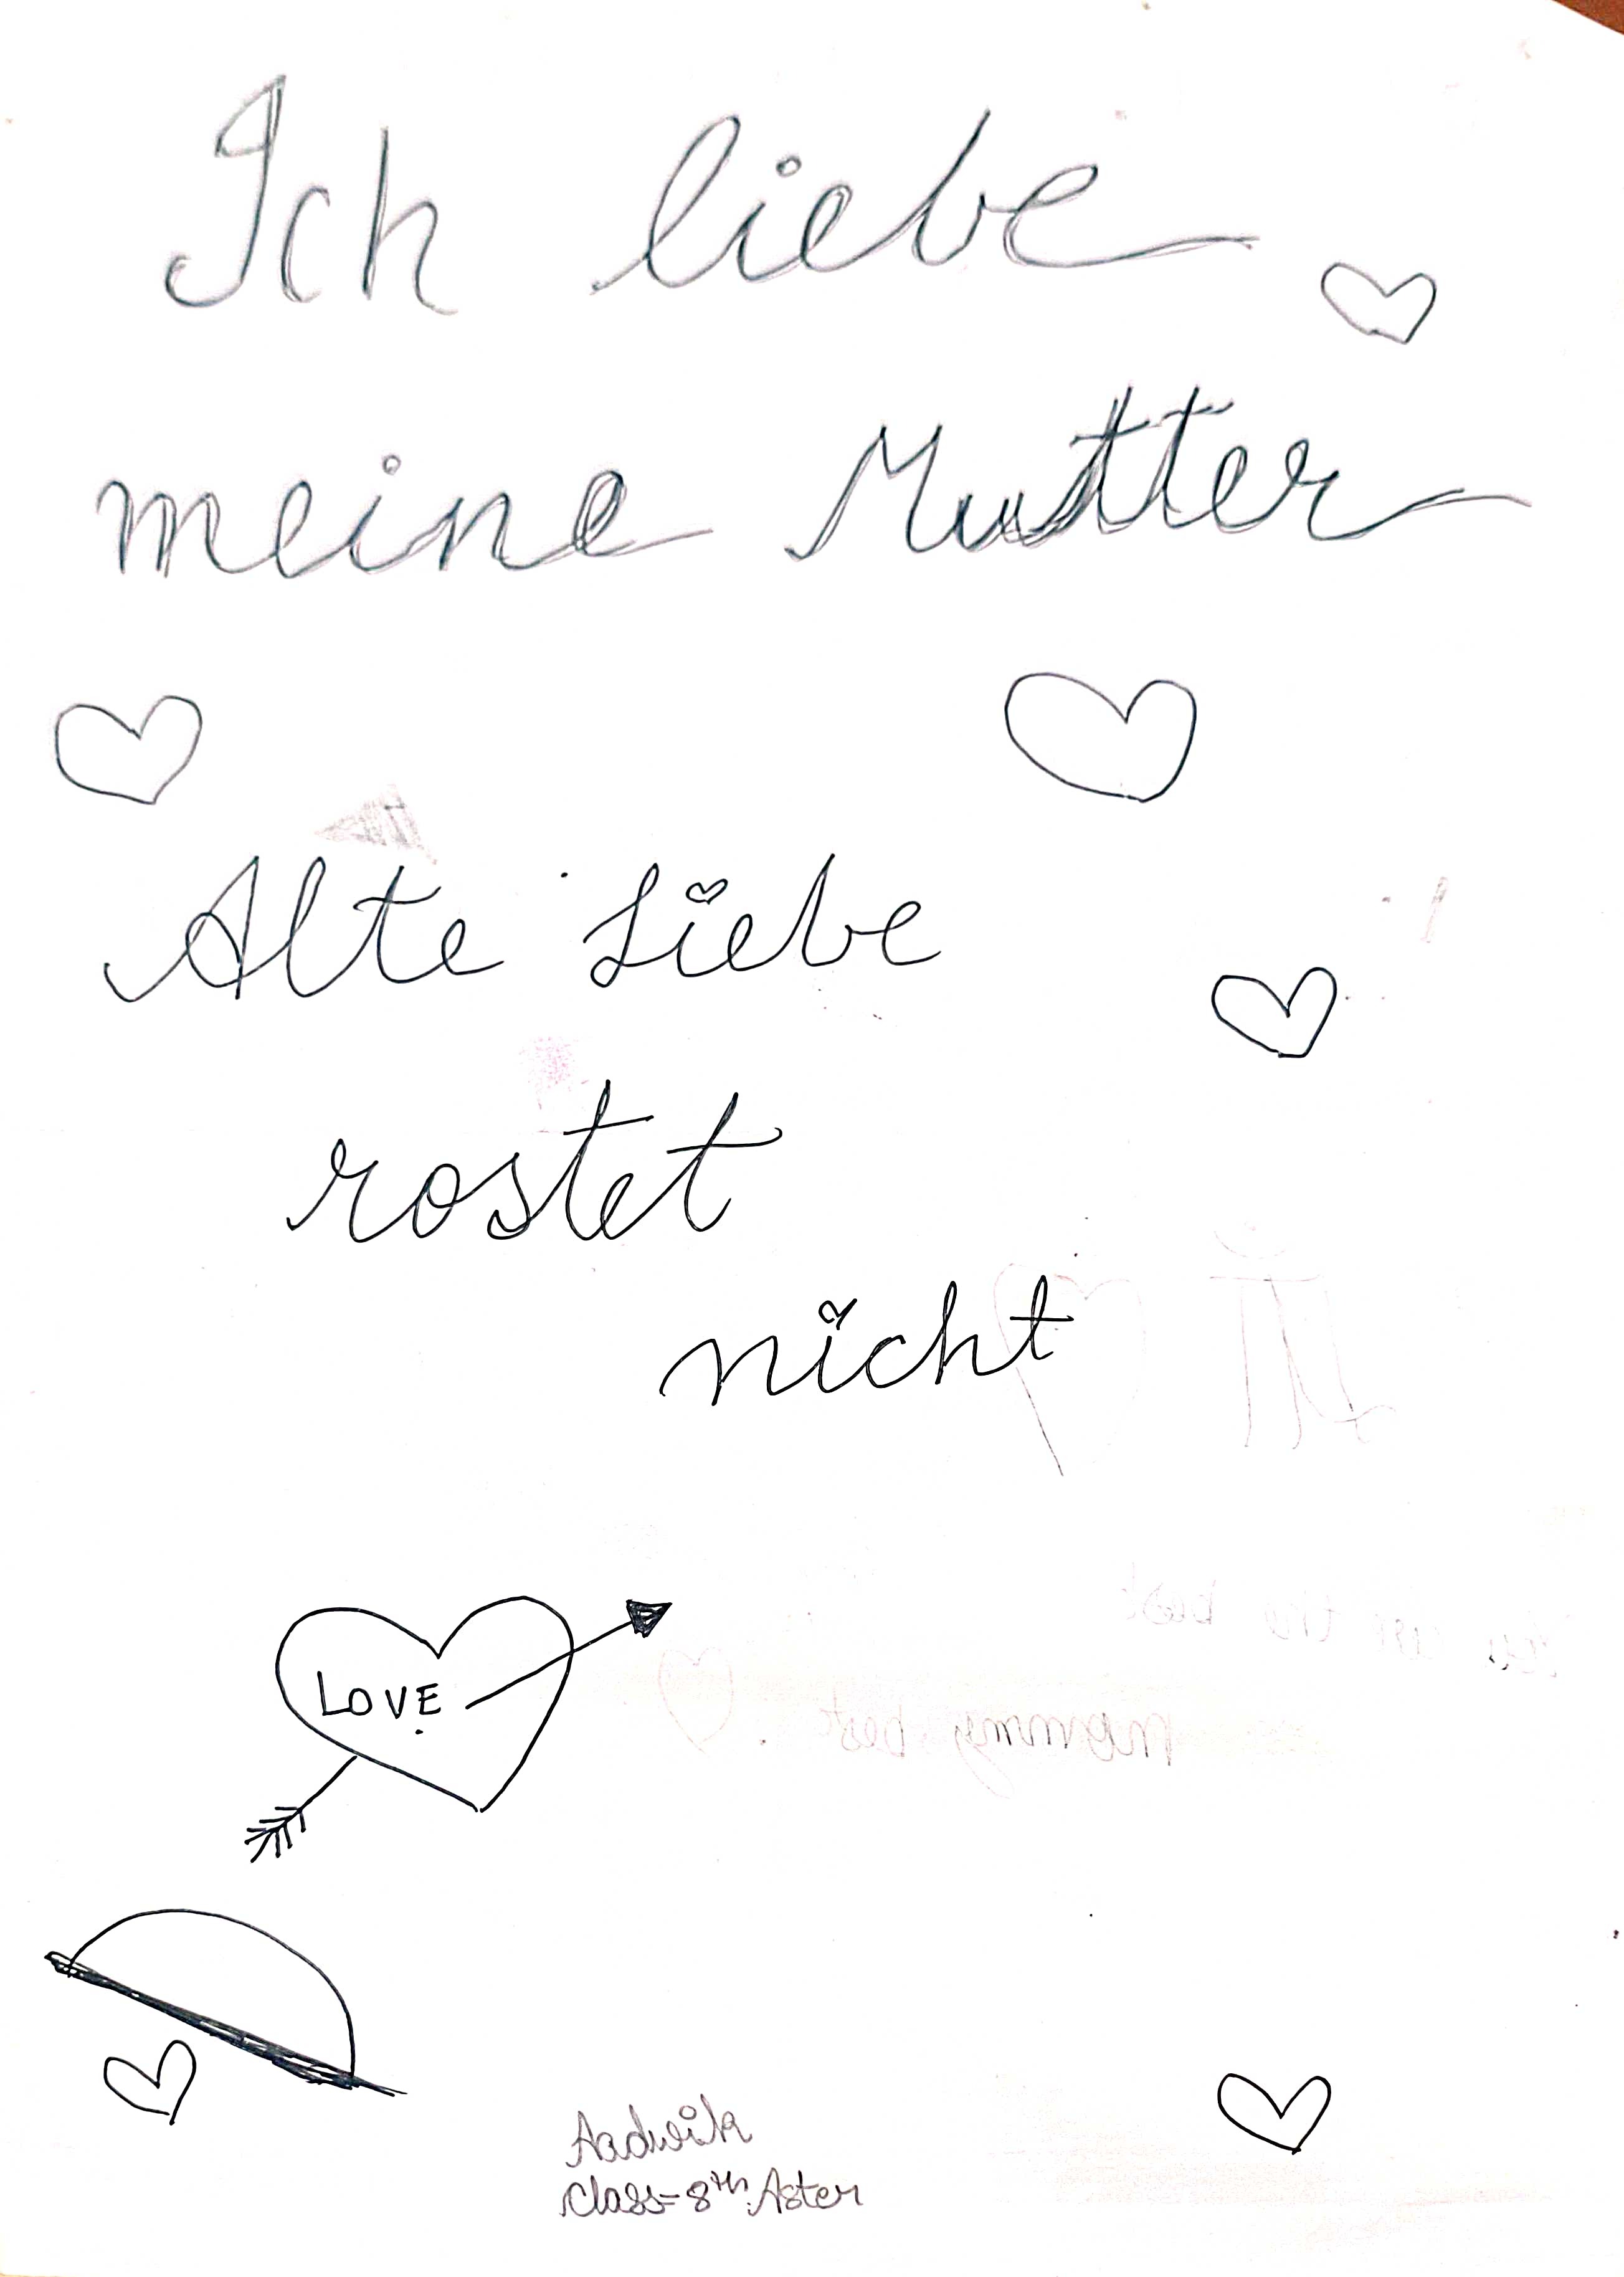 Ich liebe
meine Mutter
Alte Liebe
rostet
nicht
LOVE
mummy best
Aadwik
Class=8th Aster